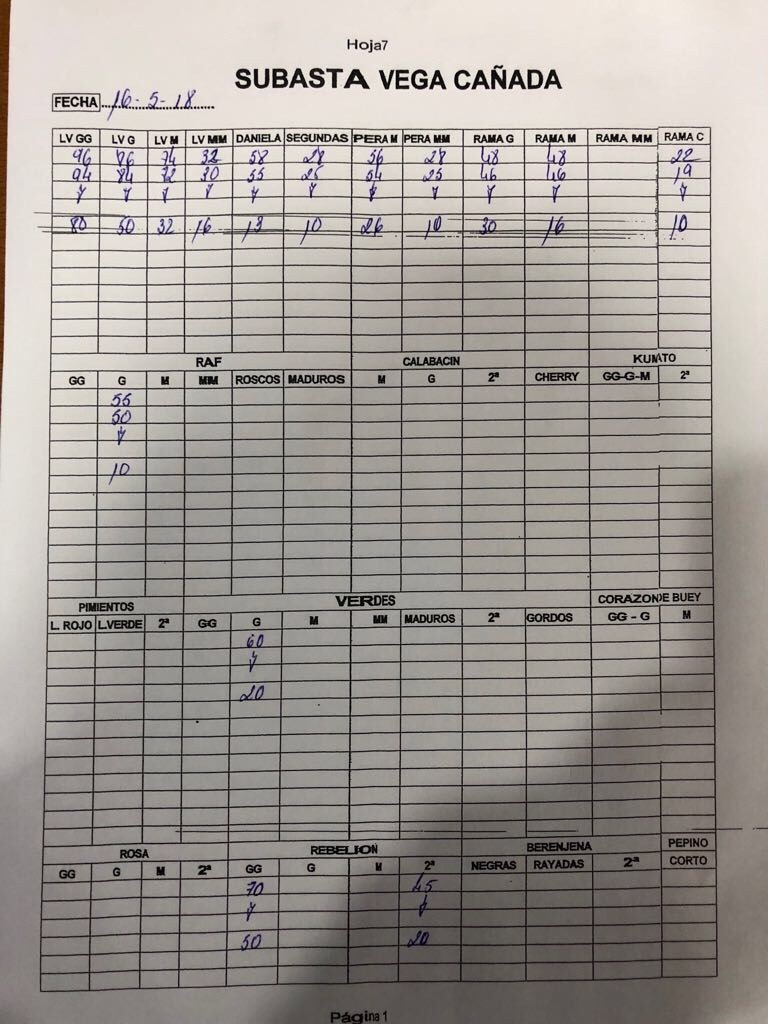 Hoja7
SUBASTA VEGA CAÑADA
FECHA 16-5-18
LV GG LV G LV M LV MM DANIELA SEGUNDAS PERA M PERA MM RAMA G RAMA M RAMA MM RAMA C
96 86 74 32 58 28 56 28 48 48 22
94 84 72 30 55 25 54 25 46 46 19
80 50 32 16 13 10 26 10 30 16 10
RAF CALABACIN KUMATO
GG G M MM ROSCOS MADUROS M G 2ª CHERRY GG-G-M 2ª
55
50
10
PIMIENTOS VERDES CORAZON DE BUEY
L. ROJO L.VERDE 2ª GG G M MM MADUROS 2ª GORDOS GG - G M
60
20
ROSA REBELION BERENJENA PEPINO
GG G M 2ª GG G M 2ª NEGRAS RAYADAS 2ª CORTO
70 45
50 20
Página 1